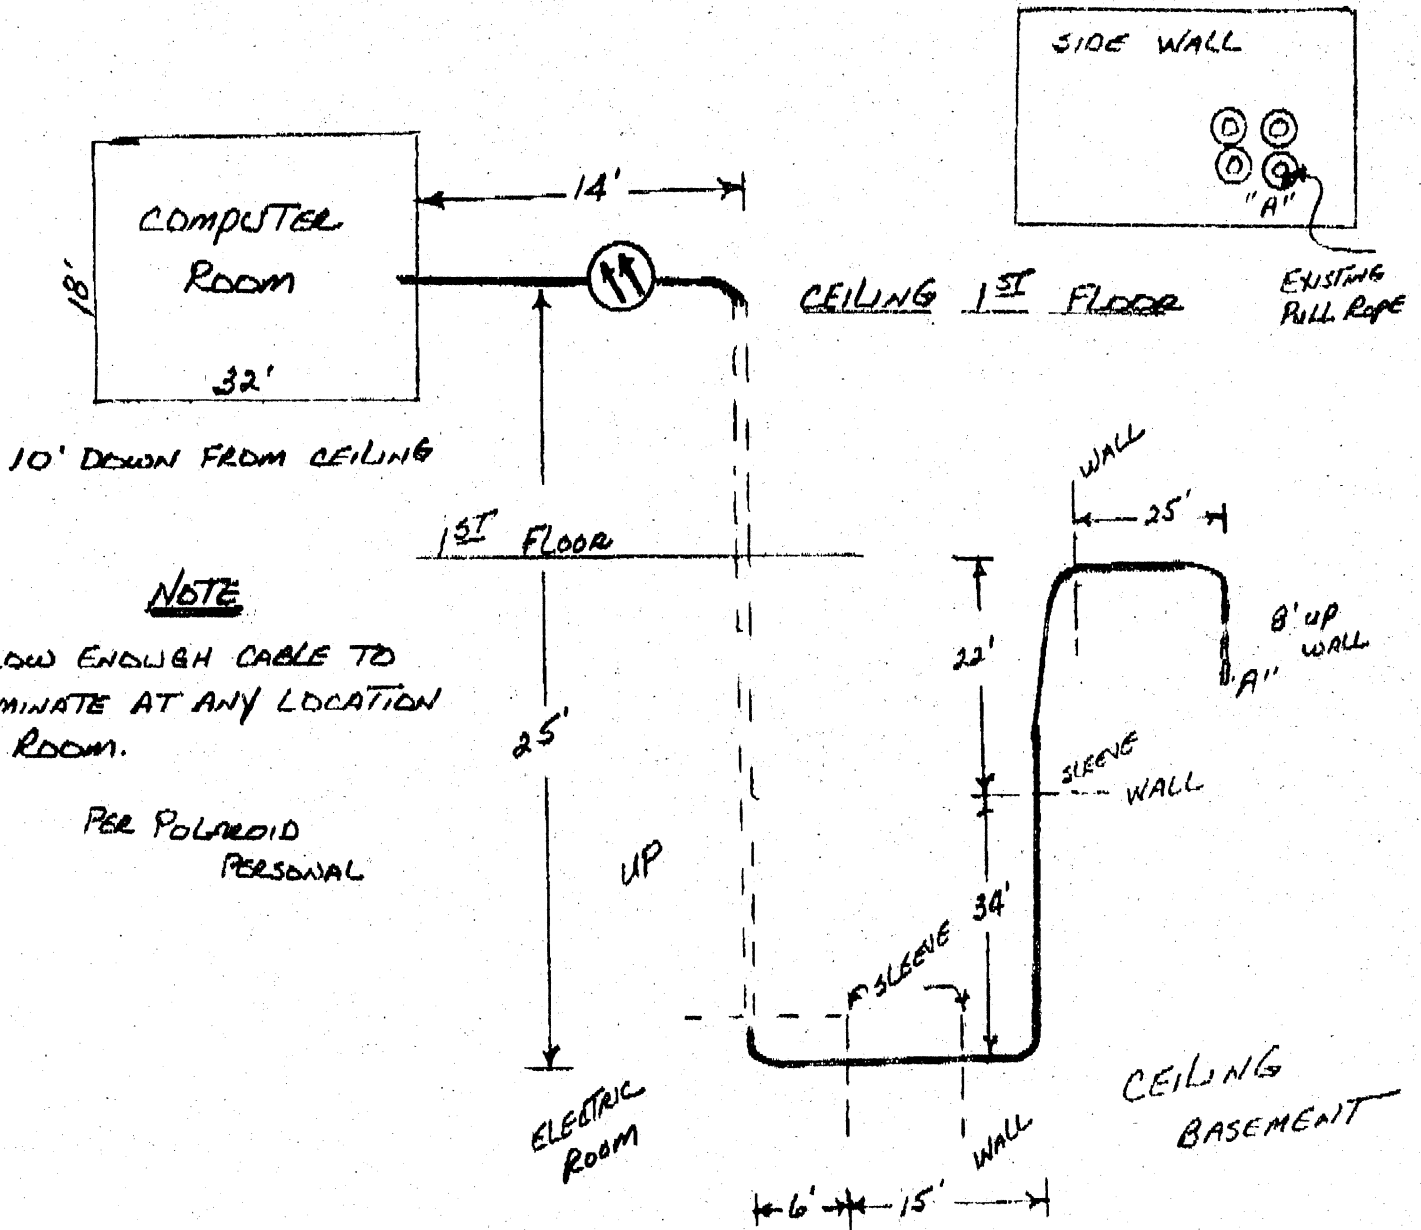 SIDE WALL
"A"
EXISTING
PULL ROPE
14'
COMPUTER
ROOM
18'
32'
CEILING 1ST FLOOR
10' DOWN FROM CEILING
1ST FLOOR
WALL
25'
NOTE
LOW ENOUGH CABLE TO
MINATE AT ANY LOCATION
ROOM.
PER POLAROID
PERSONAL
25'
UP
22'
8' UP
WALL
"A"
SLEEVE
WALL
34'
SLEEVE
ELECTRIC
ROOM
WALL
CEILING
BASEMENT
6'
15'